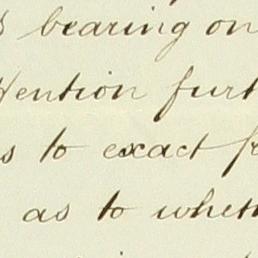 bearing on
tention furt
s to exact f
as to wheth